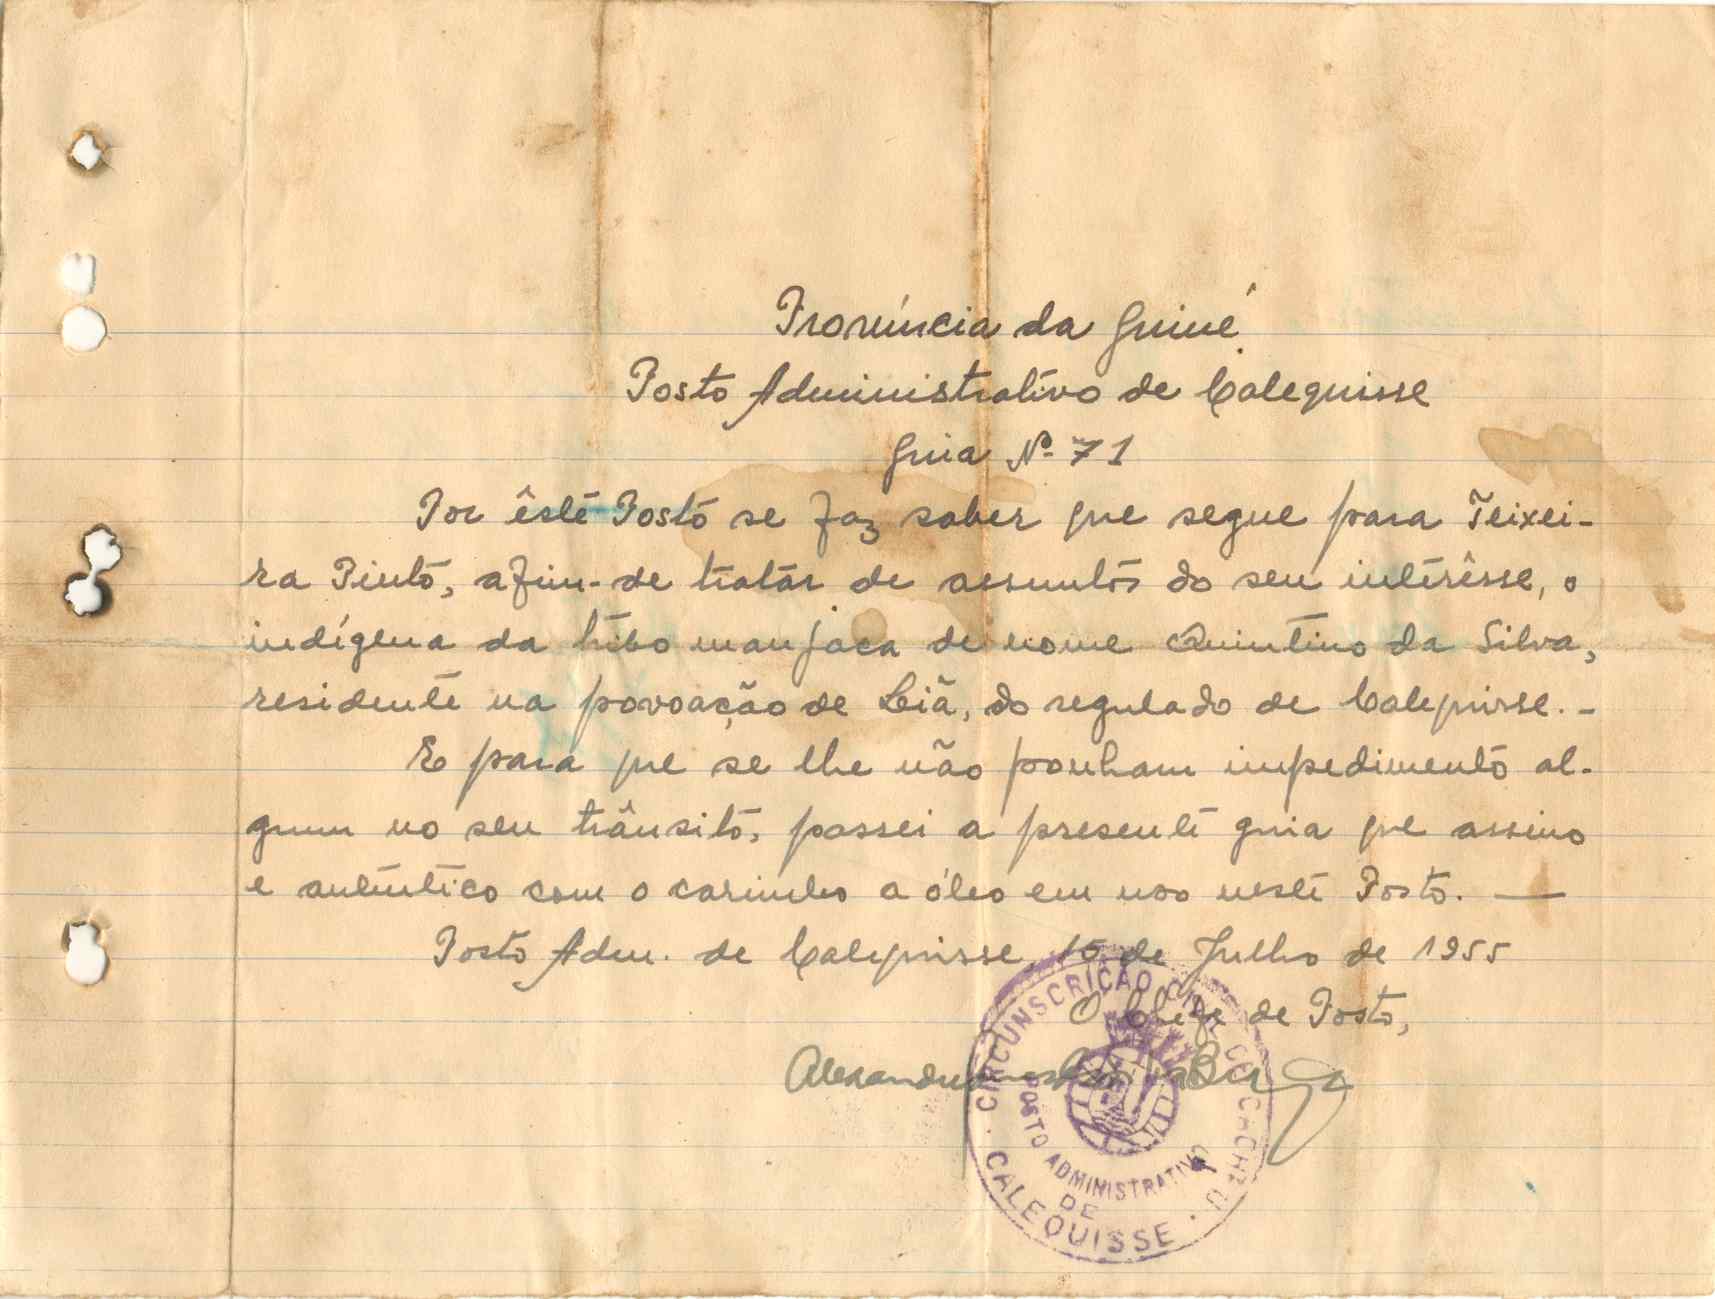 Província da Guiné
Posto Administrativo de Calequisse
Guia Nº 71
Por êste Posto se faz saber que segue para Teixei-
ra Pinto, afim-de tratar de assuntos do seu interêsse, o
indígena da tribo manjaca de nome Quintino da Silva,
residente na povoação de Liã, do regulado de Calequisse. -
E para que se lhe não ponham impedimento al-
gum no seu trânsito, passei a presente guia que assino
e autêntico com o carimbo a óleo em uso neste Posto. —
Posto Adm. de Calequisse, 15 de Julho de 1955
O Chefe de Posto,
Alexandre
CIRCUNSCRIÇÃO CIVIL CACHEU
POSTO ADMINISTRATIVO
DE
CALEQUISSE